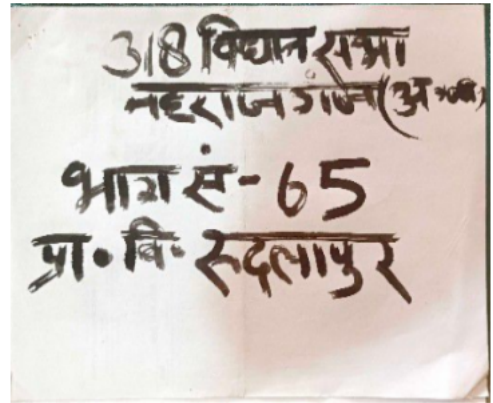 318 विधान सभा
महराजगंज (अ०जा)
भाग सं- 65
प्रा० वि॰ रूदलापुर